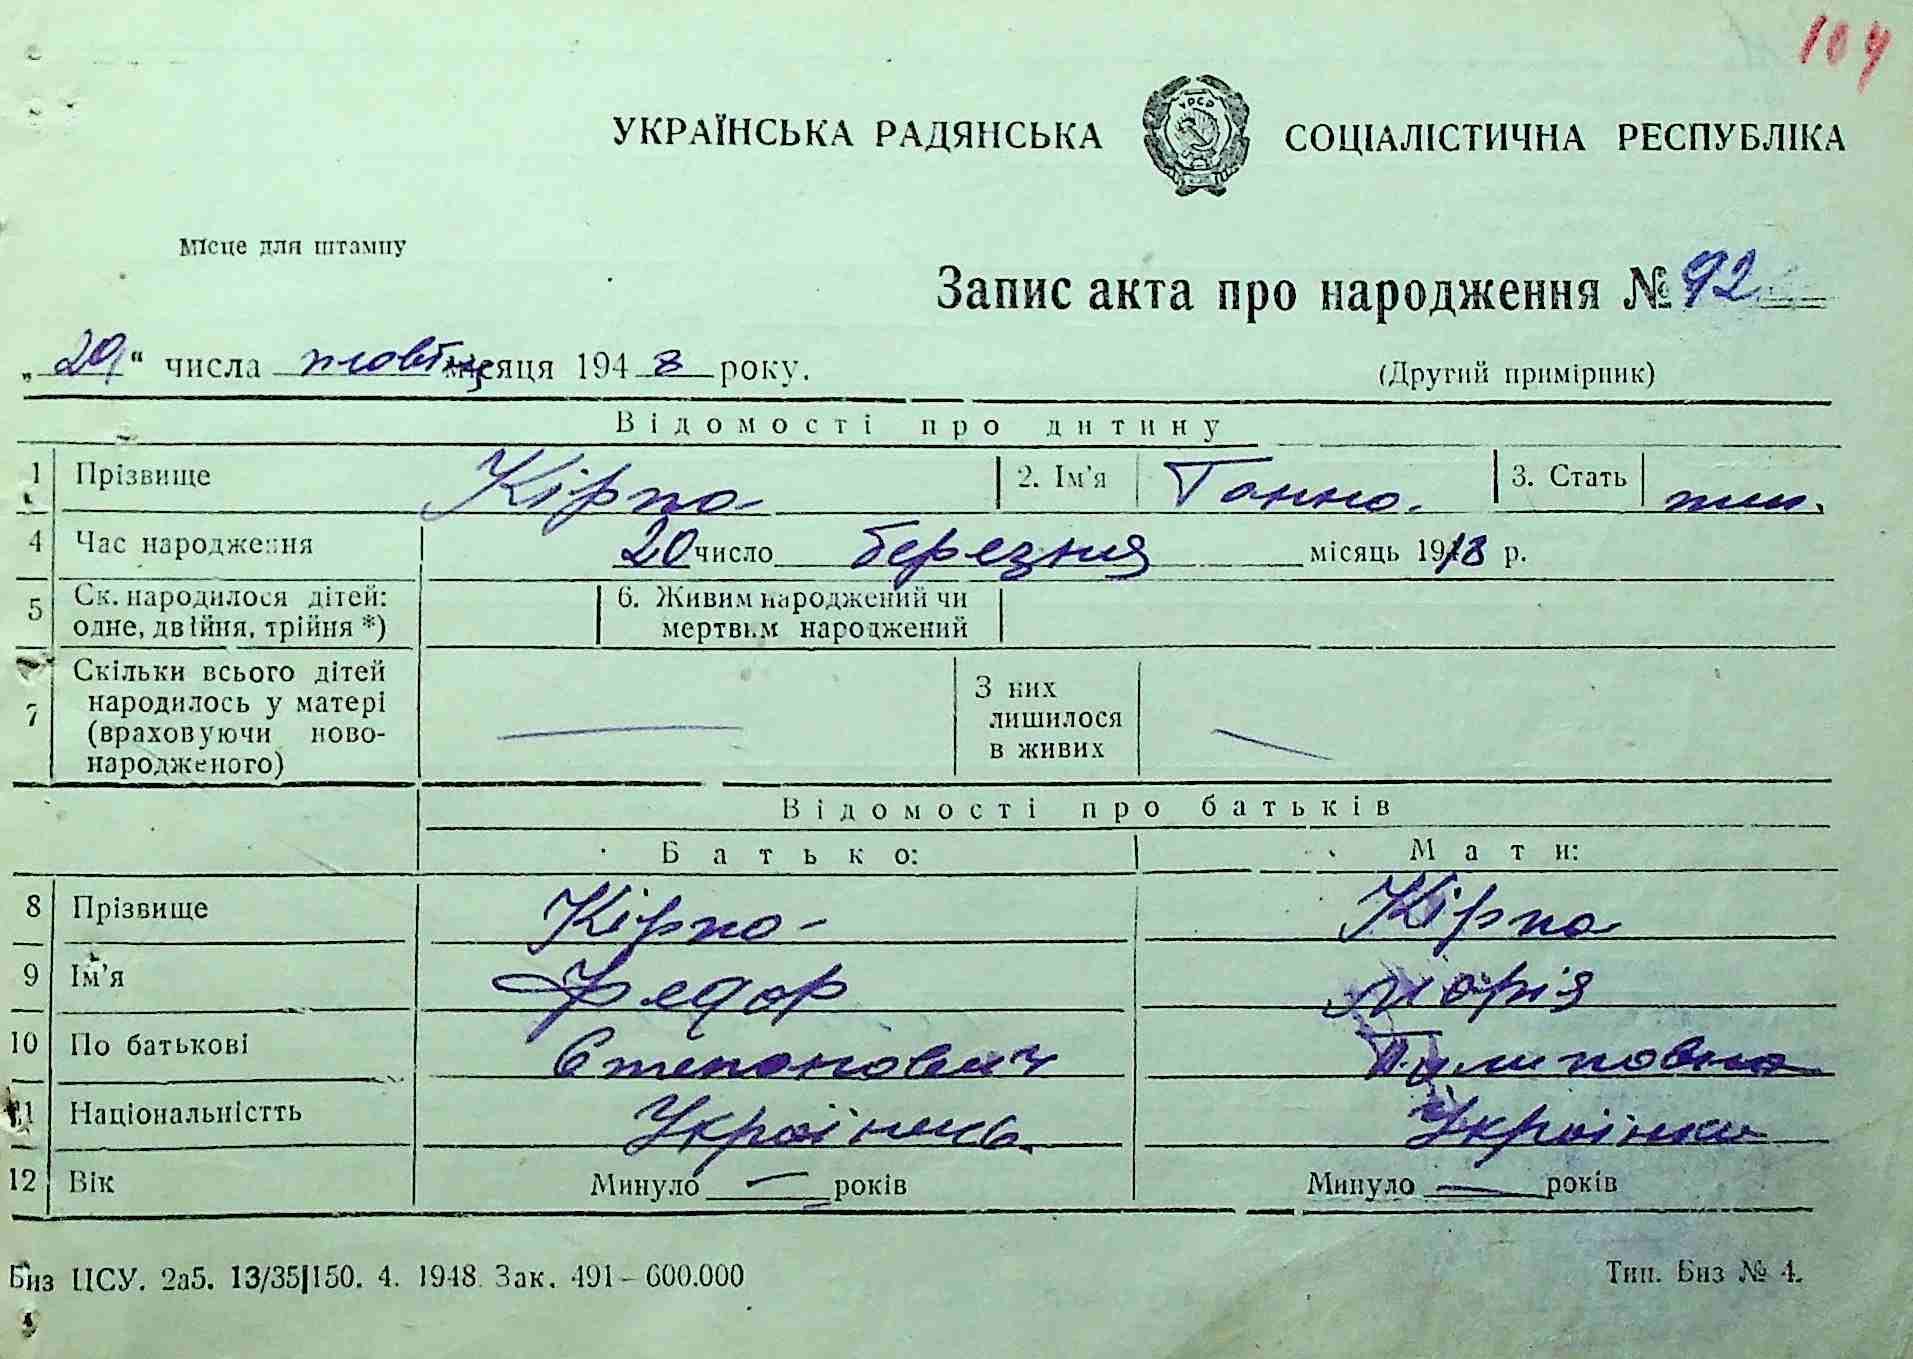 104
УКРАЇНСЬКА РАДЯНСЬКА СОЦІАЛІСТИЧНА РЕСПУБЛІКА
УРСР
Місце для штампу
Запис акта про народження № 92
„29“ числа жовтня місяця 1948 року.
(Другий примірник)
Відомості про дитину
1 Прізвище Кірпа 2. Ім'я Ганна. 3. Стать жін.
4 Час народження 20 число березня місяць 1918 р.
5 Ск. народилося дітей: одне, двійня, трійня *) 6. Живим народжений чи мертвим народжений
7 Скільки всього дітей народилось у матері (враховуючи новонародженого) — З них лишилося в живих —
Відомості про батьків
Батько: Мати:
8 Прізвище Кірпа Кірпа
9 Ім'я Федор Марія
10 По батькові Степанович Пилиповна
11 Національністть Українець Українка
12 Вік Минуло — років Минуло — років
Биз ЦСУ. 2а5. 13/35|150. 4. 1948. Зак. 491—600.000 Тип. Биз № 4.